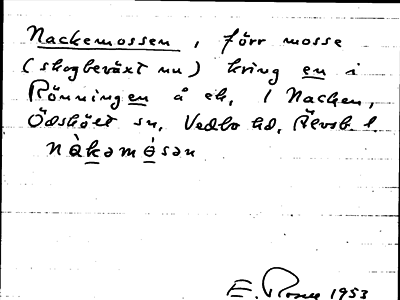 Nackemossen, förr mosse
(skogbeväxt nu) kring en i
Rönningen å ek. 1 Nacken,
Ödskölt sn, Vedbo hd, Älvsb. l.
nàkəmósən
E. Rosen 1953